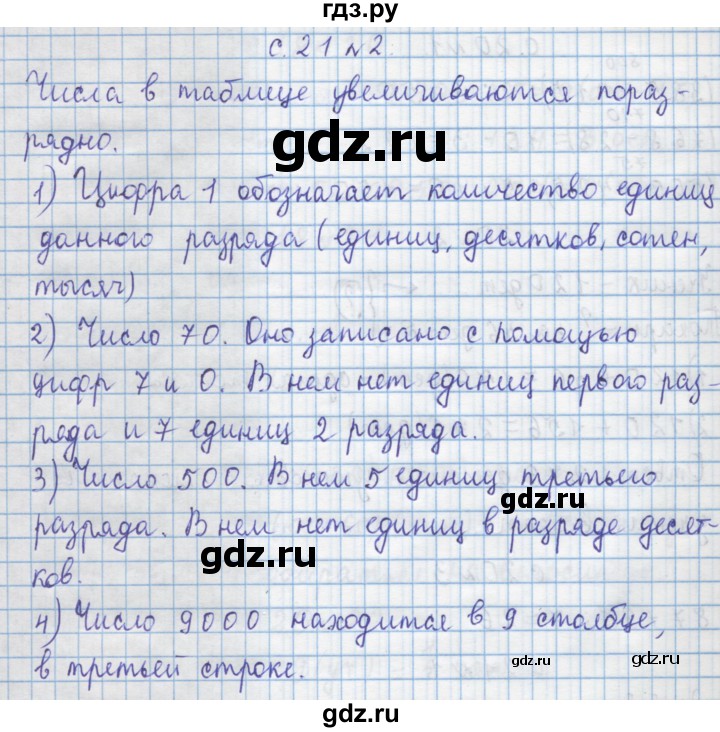 гдз.ру
с. 21 №2.
Числа в таблице увеличиваются пораз-
рядно.
gdz.ru
1) Цифра 1 обозначает количество единиц
данного разряда (единиц, десятков, сотен,
тысяч)
2) Число 70. Оно записано с помощью
цифр 7 и 0. В нем нет единиц первого раз-
ряда и 7 единиц 2 разряда.
3) Число 500. В нем 5 единиц третьего
gdz.ru
разряда. В нем нет единиц в разряде десят-
gdz.ru
ков.
4) Число 9000 находится в 9 столбце,
в третьей строке.
gdz.ru
gdz.ru
gdz.ru